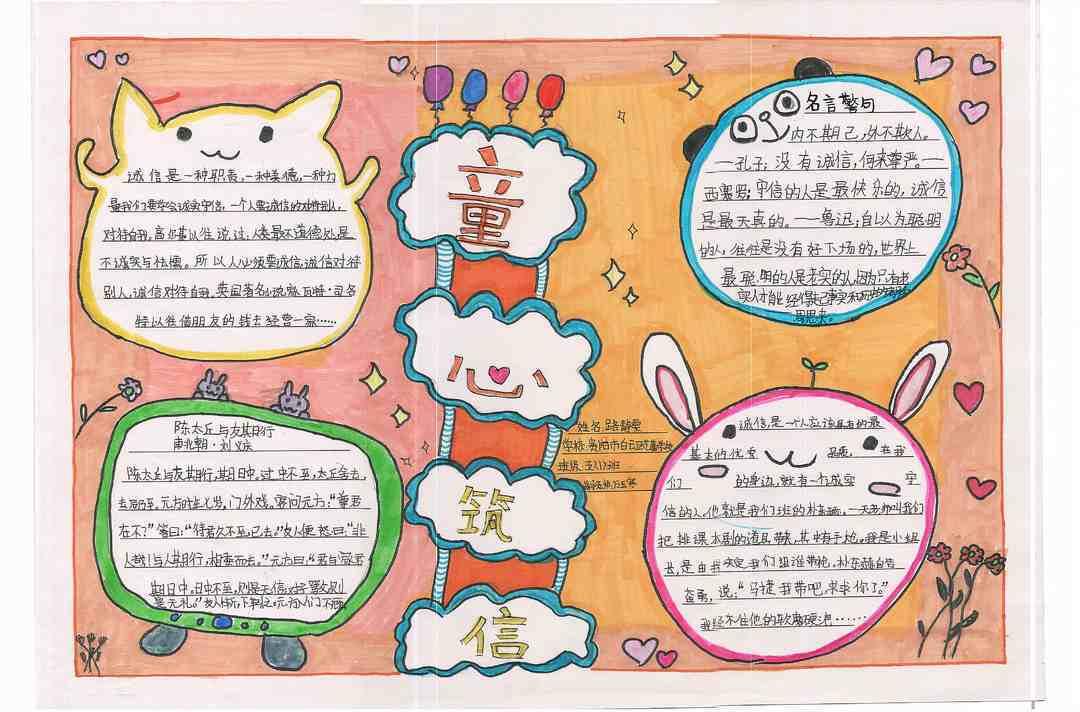 诚信是一种职责,一种美德,一种力
量我们要学会诚实守信,一个人要诚信的对待别人,
对待自我,高尔基以往说过:人类最不道德处,是
不诚实与怯懦。所以人必须要诚信,诚信对待
别人,诚信对待自我,英国著名小说家瓦特·司各
特以往借朋友的钱去经营一家……
陈太丘与友期行
南北朝·刘义庆
陈太丘与友期行,期日中,过中不至,太丘舍去,
去后乃至。元方时年七岁,门外戏。客问元方:“尊君
在不?”答曰:“待君久不至,已去。”友人便怒曰:“非
人哉!与人期行,相委而去。”元方曰:“君与家君
期日中。日中不至,则是无信;对子骂父,则
是无礼。”友人惭,下车引之,元方入门不顾
童
心
筑
信
名言警句
内不期己,外不欺人。
—孔子;没有诚信,何来尊严。—
西塞罗;守信的人是最快乐的,诚信
是最天真的。——鲁迅;自以为聪明
的人,往往是没有好下场的,世界上
最聪明的人是老实的人因为只有老
实人才能经得起事实和历史的
姓名:路
学校:贵阳市白云区
班级:五
诚信,是一个人应该具有的最
基本的优秀 品质, 在我
们 的身边,就有一个诚实 守
信的人,他就是我们班的朴 。一天,老师叫我们
把排课本剧的道具带来,其中有手枪。我是小组
长,是由我决定我们组谁带枪,朴 自告
奋勇,说:“马 我带吧,求求你了。”
我经不住他的软磨硬泡……